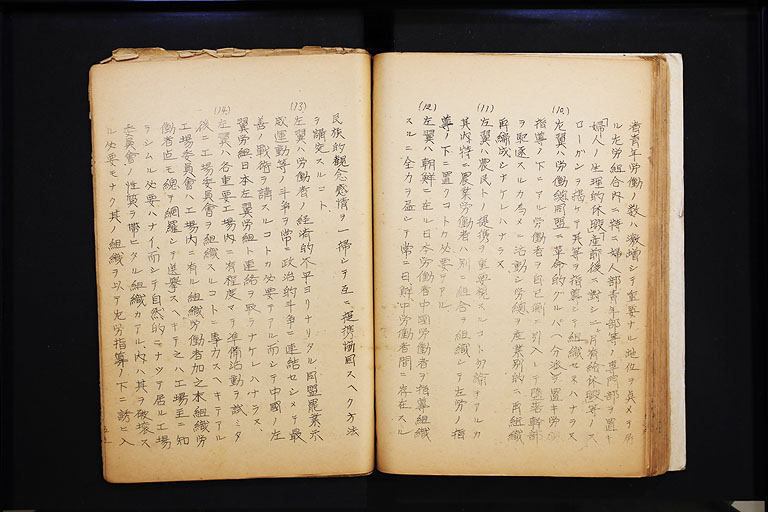 者青年労働ノ数ハ激増シテ重要ナル地位ヲ占メヲ
ル左労組合内ニ特ニ婦人部青年部等ノ専門部ヲ置キ
「婦人ノ生理的休暇」産前後ニ対シ二ヶ月有給休暇等ノス
ローガンヲ掲ケテ其等ヲ指導シ組織セネハナラス
(10)左翼ハ労働総同盟ニ革命的グルッパヘ分派ヲ置キ労
指導ノ下ニアル労働者ヲ自己側ニ引入レテ堕落幹部
ヲ駆逐スルカ為メニ活動シ労総ヲ産業別的ニ再組織
再編成シナケレハナラス
(11)左翼ハ農民トノ提携ヲ重要視スルコト勿論テアルカ
其内特ニ農業労働者ハ別ニ組合ヲ組織シテ左労ノ指
導ノ下ニ置クコトカ必要テアル
(12)左翼ハ朝鮮ニ在ル日本労働者中國労働者ヲ指導組織
スルニ全力ヲ盡シテ常ニ日鮮中労働者間ニ存在スル
民族的観念感情ヲ一掃シテ互ニ提携協同スヘク方法
ヲ講究スルコト
(13)左翼ハ労働者ノ経済的不平ヨリナリタル同盟罷業示
威運動等ノ斗争ヲ常ニ政治的斗争ニ連結セシメテ最
善ノ戦術ヲ講スルコトカ必要テアル、而シテ中國ノ左
翼労組日本左翼労組ト連絡ヲ取ラナケレハナラス、
(14)左翼ハ各重要工場内ニ有程度マテ準備活動ヲ試ミタ
後ニ工場委員會ヲ組織スルコトニ専力スヘキテアル
工場委員會ハ工場内ニ有ル組織労働者加之未組織労
働者迄モ總テ網羅シテ選挙スヘキテ之ハ工場主ニ知
ラシムル必要ハナイ、而シテ自然的ニナツテ居ル工場
委員會ノ性質ヲ帯ヒタル組織カアル、内ハ其ヲ破壊ス
ル必要モナク其ノ組織ヲ以テ左労指導ノ下ニ誘ヒ入